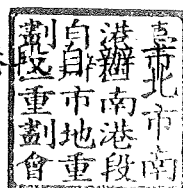 臺北市南
港南港段
自辦市地重
劃區重劃會